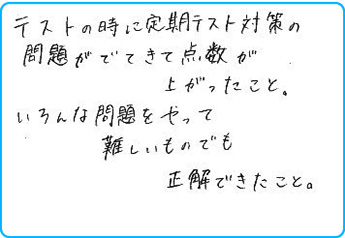 テストの時に定期テスト対策の
問題がでてきて点数が
上がったこと。
いろんな問題をやって
難しいものでも
正解できたこと。